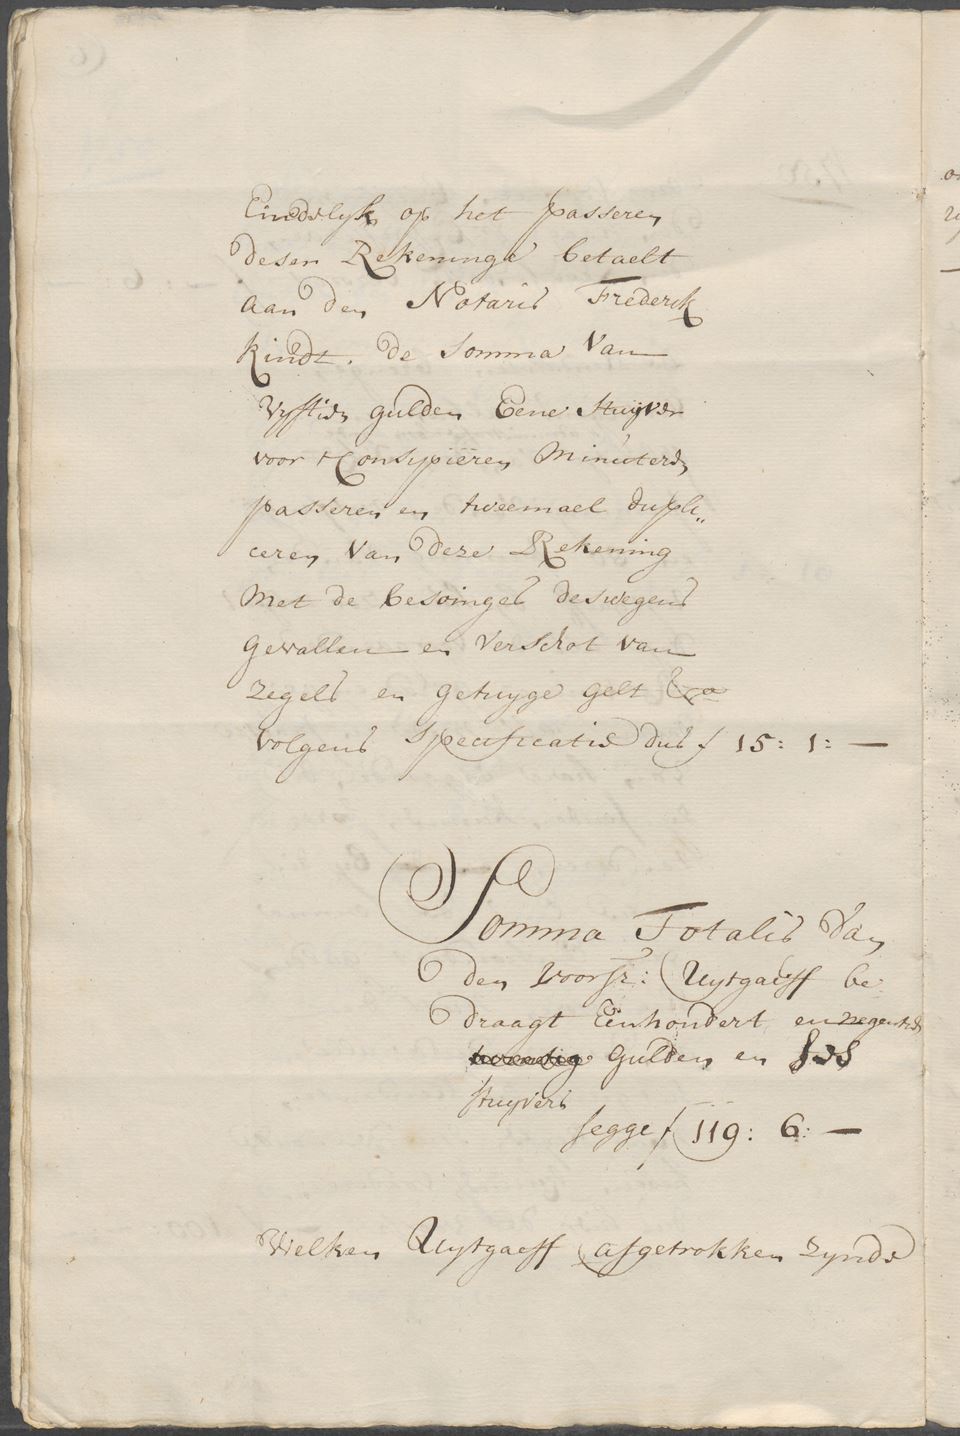 Eindelyk op het passeren
deser Rekeninge betaelt
aan den Notaris Frederik
Kindt. de Somma van
Vyftien gulden Eene Stuyver
voor 't Consipiëren Ministeren
passeren en tweemael dupli„
ceren van deze Rekening
Met de besoinges deswegens
gevallen en verschot van
zegels en getuyge gelt &ca
volgens Specificatie dus f 15: 1: —
Somma Totalis van
den voorsz: Uytgaeff be
draagt Eenhondert en negentien
twentig gulden en ses
stuyvers
segge f 119: 6: —
Welken Uytgaeff afgetrokken zynde